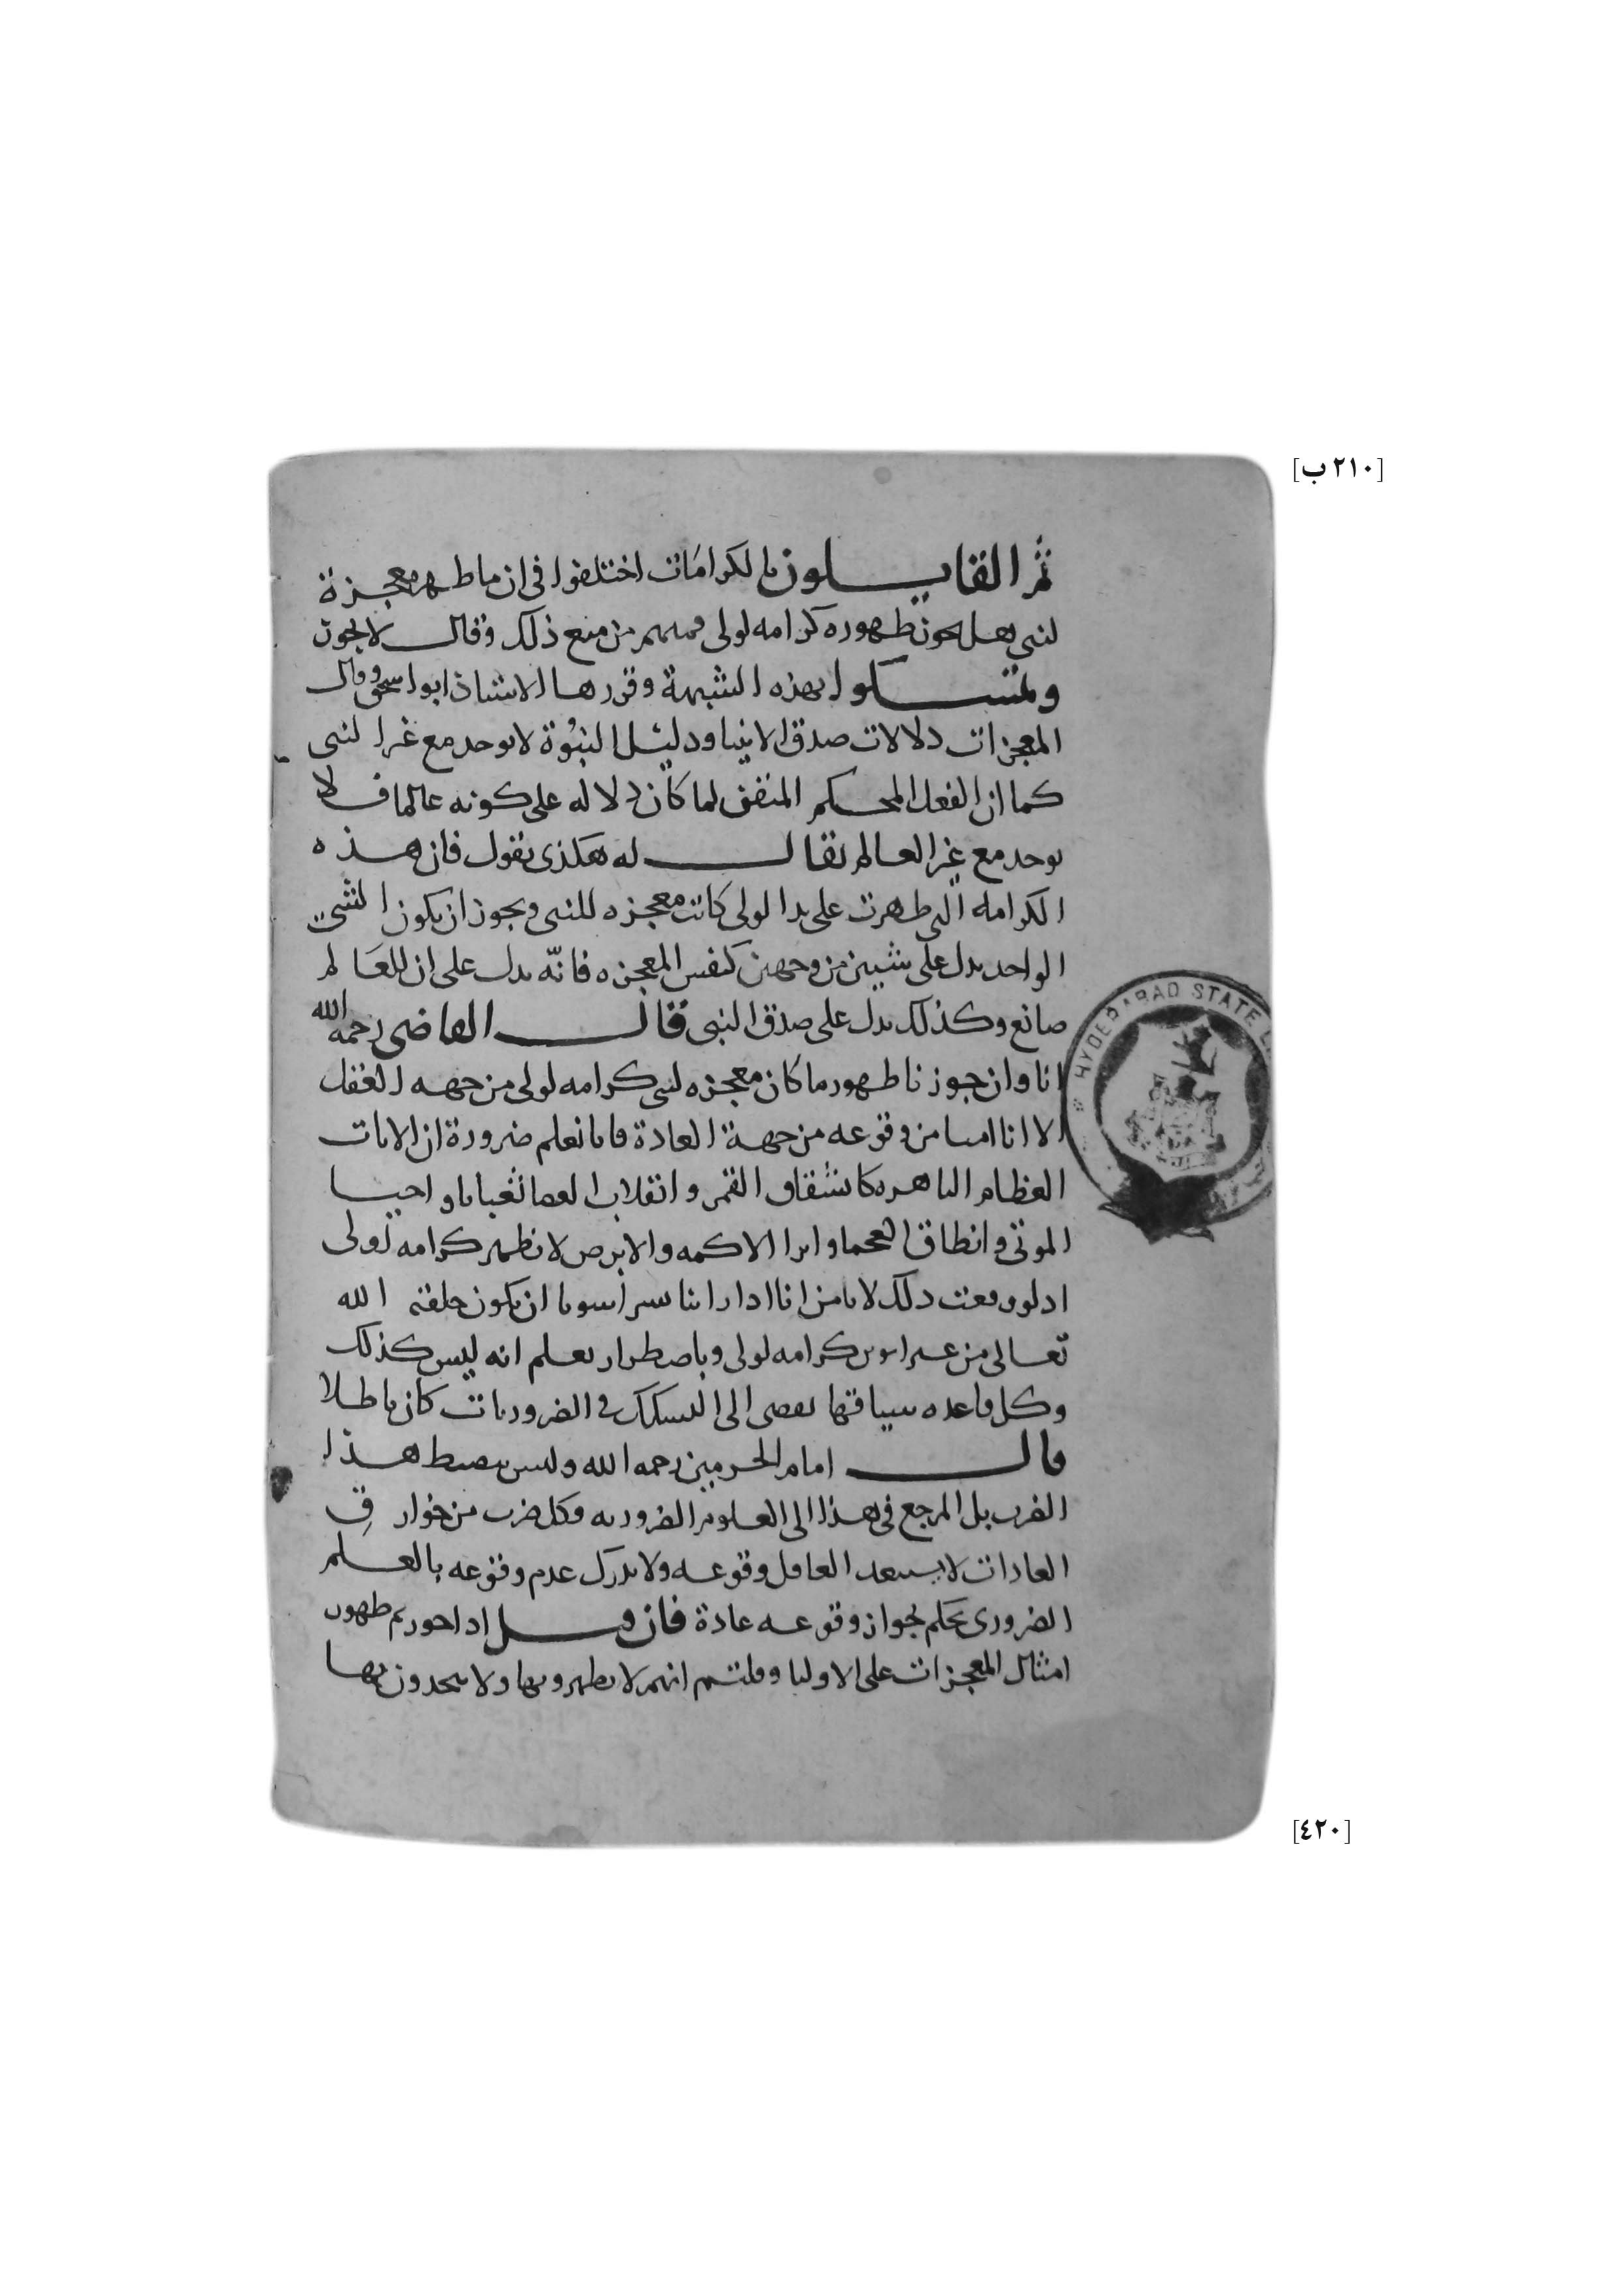 [٢١٠ ب]
ثم القايلون بالكرامات اختلفوا في ان ما ظهر معجزة
لنبي هل يجوز ظهوره كرامه لولي فمنهم من منع ذلك وقال لا يجوز
وتمسكوا بهذه الشبهة وقررها الاستاذ ابو اسحق وقال
المعجزات دلالات صدق الانبيا ودليل النبوة لا يوجد مع غير النبي
كما ان الفعل المحكم المتقن لما كان دلاله على كونه عالما فلا
يوجد مع غير العالم يقال له هكذى نقول فان هذه
الكرامه التي ظهرت على يد الولي كانت معجزه للنبي ويجوز ان يكون الشي
الواحد يدل على شيين من وجهين كنفس المعجزه فانّه يدل على ان للعالم
صانع وكذلك يدل على صدق النبي قال القاضي رحمه الله
انا وان جوزنا ظهور ما كان معجزه لنبي كرامه لولي من جهه العقل
الا انا امنا من وقوعه من جهة العادة فانا نعلم ضرورة ان الايات
العظام الباهره كانشقاق القمر وانقلاب العصا ثعبانا واحيا
الموتى وانطاق العجما وابرا الاكمه والابرص لا تظهر كرامه لولي
اذ لو وقعت ذلك لا نامن انا اذا راينا بشرا سويا ان يكون خلقه الله
تعالى من غير ابوين كرامه لولي وباضطرار نعلم انه ليس كذلك
وكل قاعده سياقتها تفضي الى التشكك في الضروريات كان باطلا
قال امام الحرمين رحمه الله وليس ينضبط هذا
الضرب بل المرجع في هذا الى العلوم الضروريه وكل ضرب من خوارق
العادات لا يستبعد العاقل وقوعه ولا يدرك عدم وقوعه بالعلم
الضروري نحكم بجواز وقوعه عادة فان قيل اذا جوزتم ظهور
امثال المعجزات على الاوليا وقلتم انهم لا يظهرونها ولا يتحدون بها
HYDERABAD STATE
[٤٢٠]